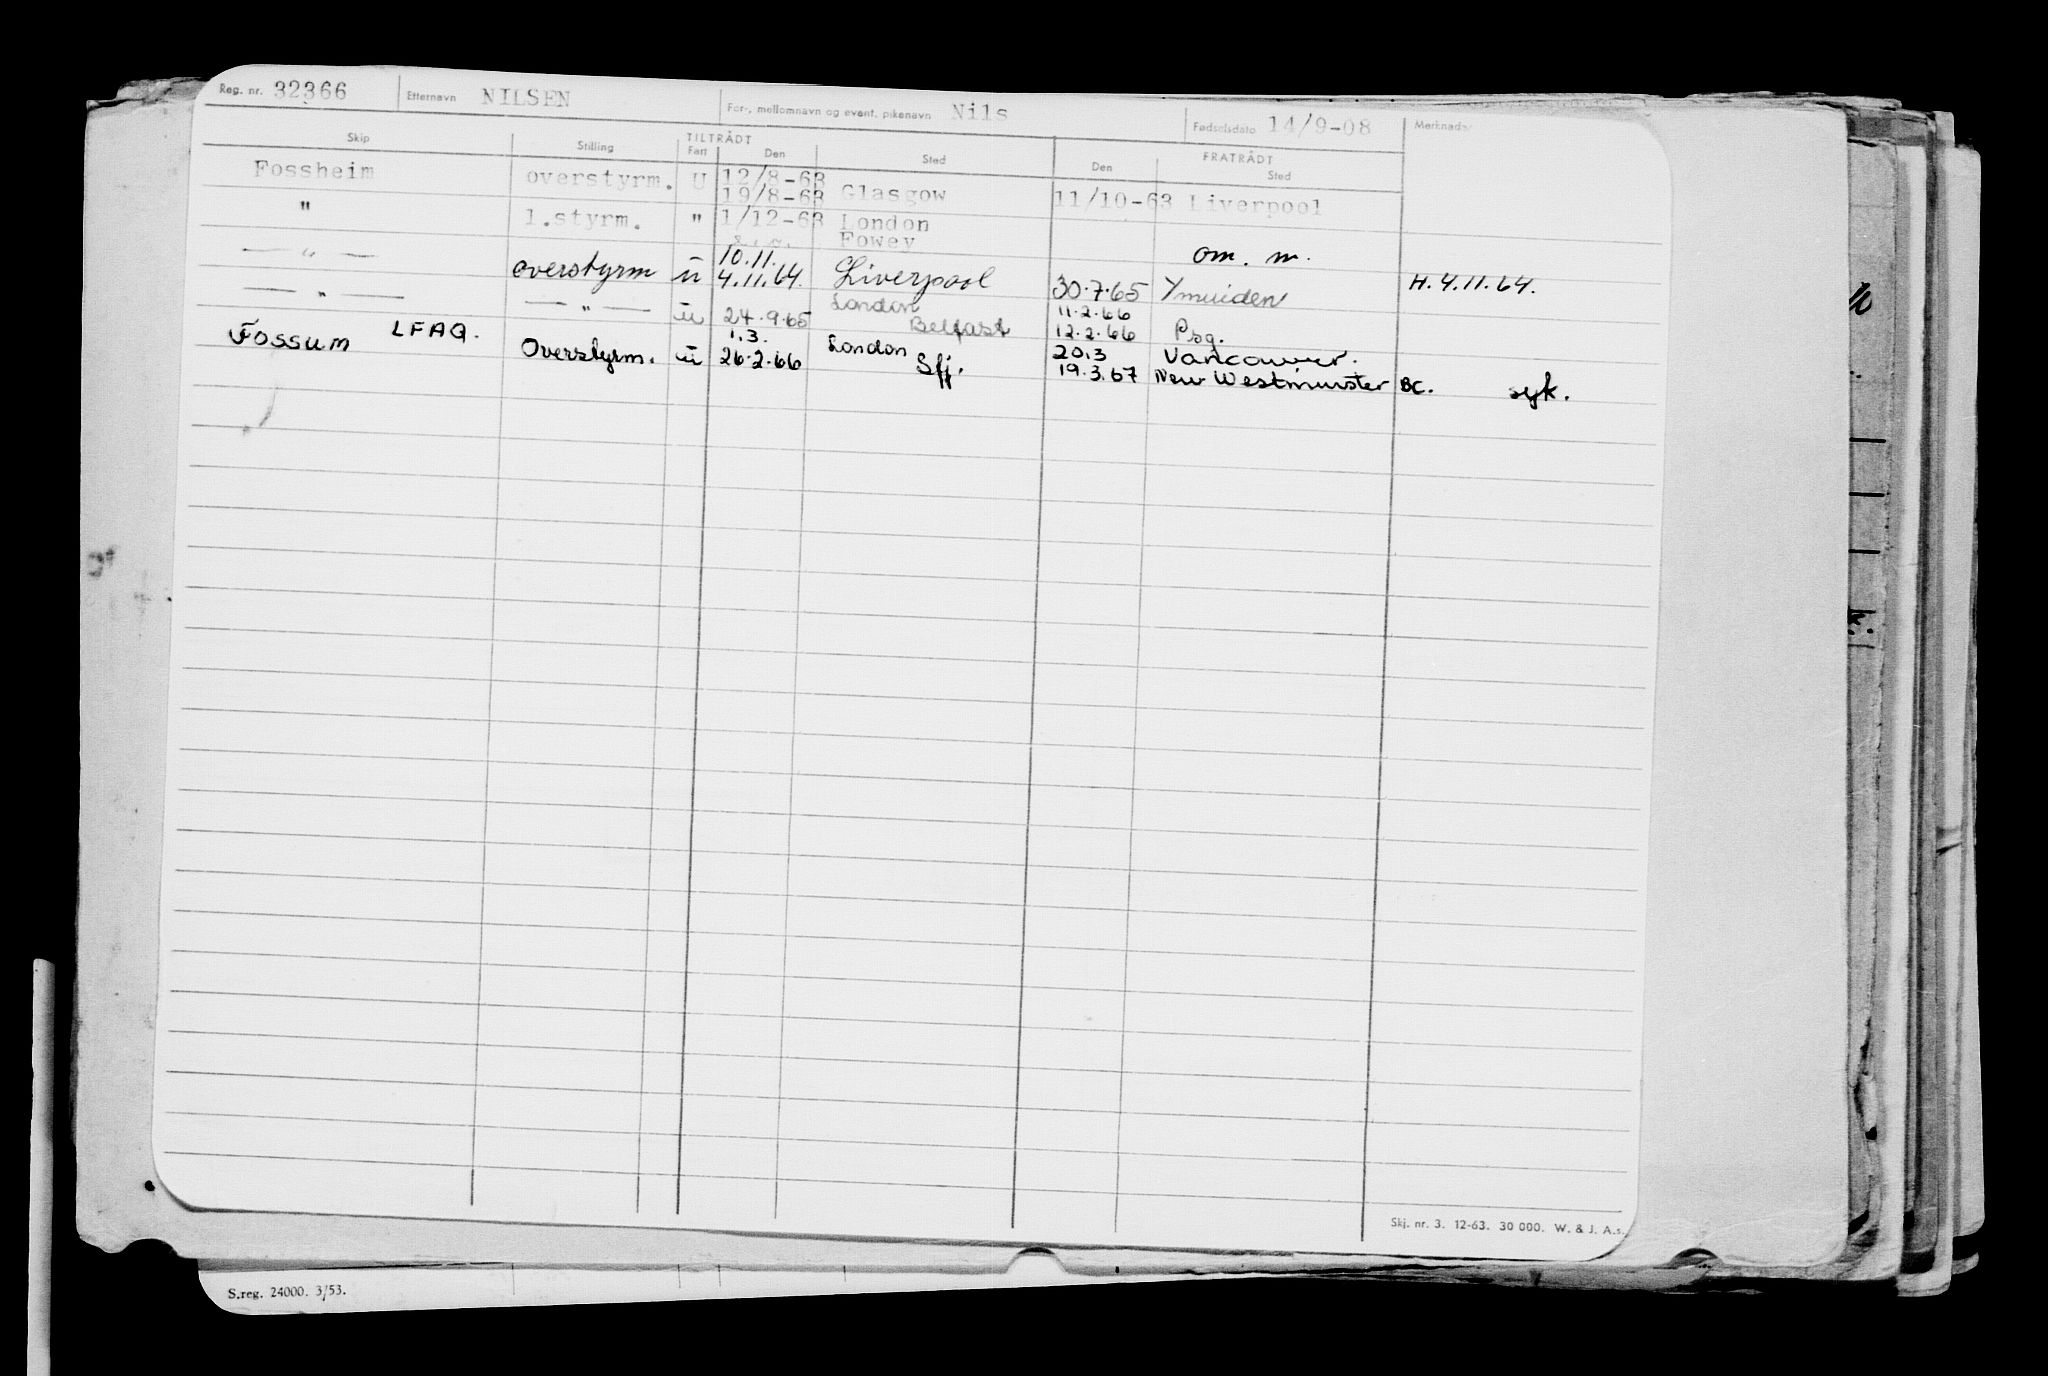 Reg. nr. 32366 Etternavn NILSEN For-, mellomnavn og event. pikenavn Nils Fødselsdato 14/9-08 Merknader
Skip Stilling TILTRÅDT Fart Den Sted FRATRÅDT Den Sted
Fossheim overstyrm. U 12/8-63
19/8-63 Glasgow 11/10-63 Liverpool
" 1.styrm. " 1/12-63 London
Fowey
— " — 10.11. om. m.
overstyrm u 4.11.64. Liverpool 30.7.65 Ymuiden H. 4.11.64.
— " — London 11.2.66
— " — u 24.9.65 Belfast 12.2.66 Psg.
Fossum LFAQ. 1.3. London 20.3 Vancouver.
Overstyrm. u 26.2.66 Sfj. 19.3.67 New Westminster BC. syk.
Skj. nr. 3. 12-63. 30 000. W. & J. A.s.
S.reg. 24000. 3/53.